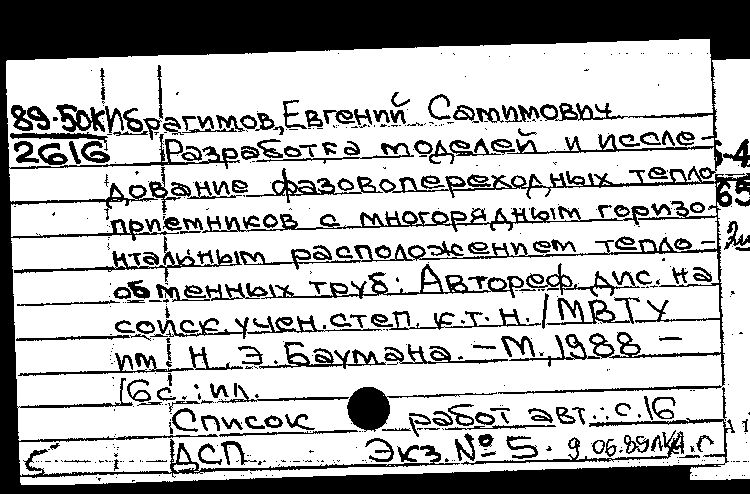 89-50к Ибрагимов, Евгений Салимович
2616 Разработка моделей и иссле-
дование фазовопереходных тепло-
приемников с многорядным горизо-
нтальным расположением тепло-
обменных труб: Автореф. дис. на
соиск. учен. степ. к.т.н. / МВТУ
им. Н.Э. Баумана. - М., 1988 -
16с.: ил.
Список работ авт.: с. 16
ДСП. Экз. № 5. 9.06.89